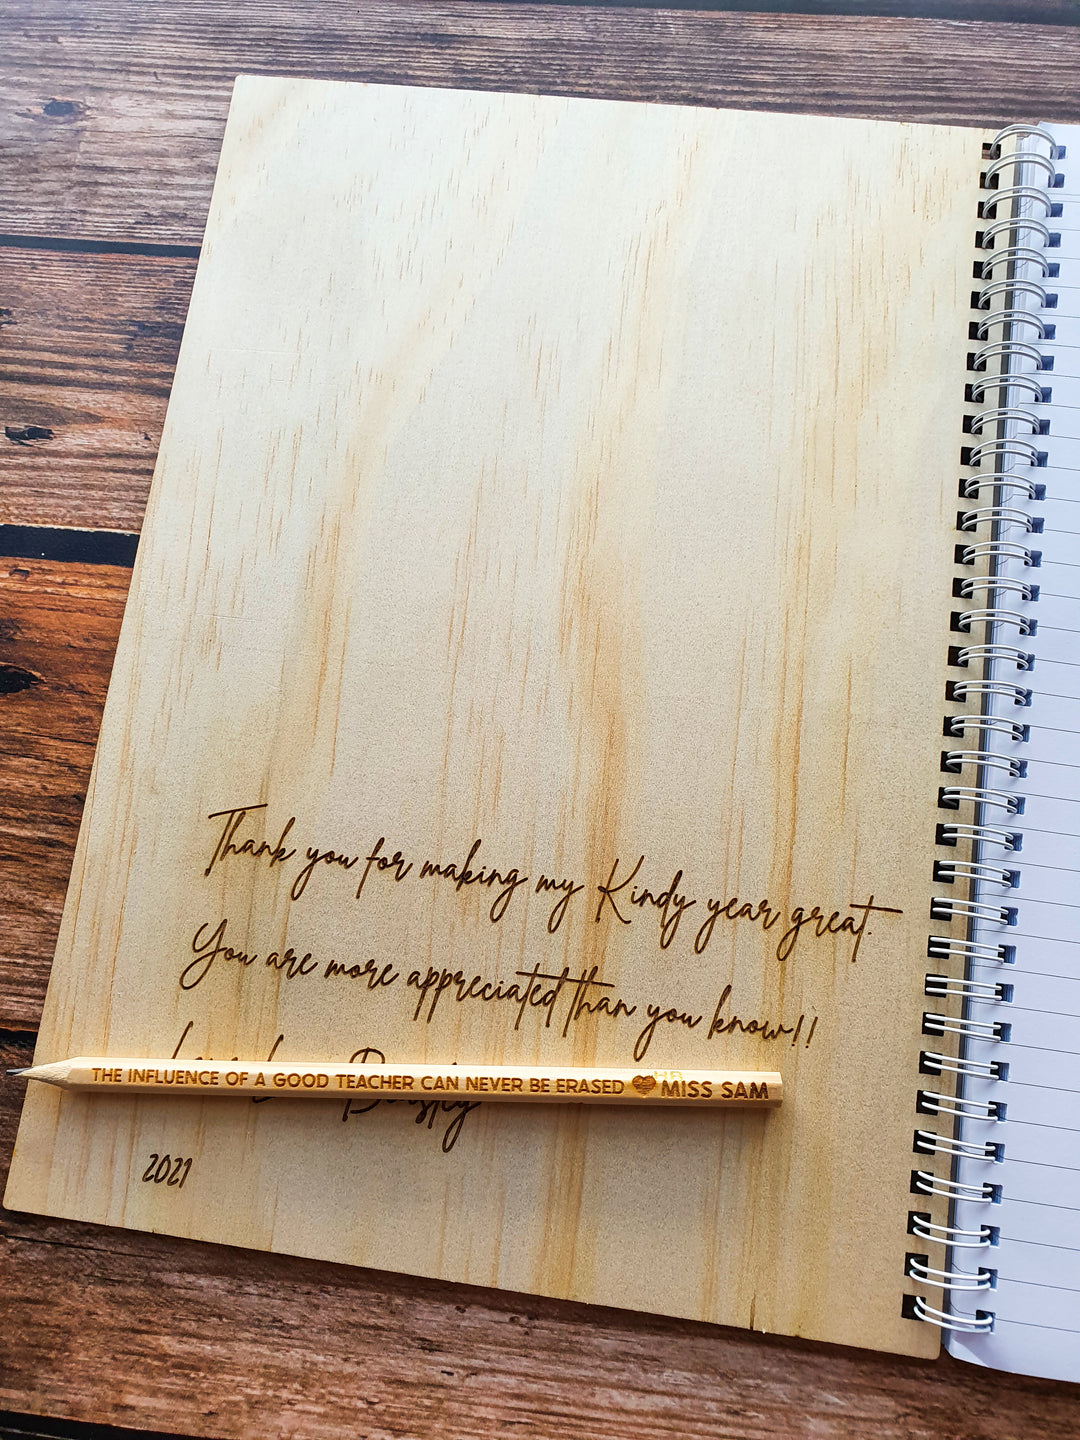 Thank you for making my Kindy year great.
You are more appreciated than you know!!
THE INFLUENCE OF A GOOD TEACHER CAN NEVER BE ERASED MISS SAM
HB
2021